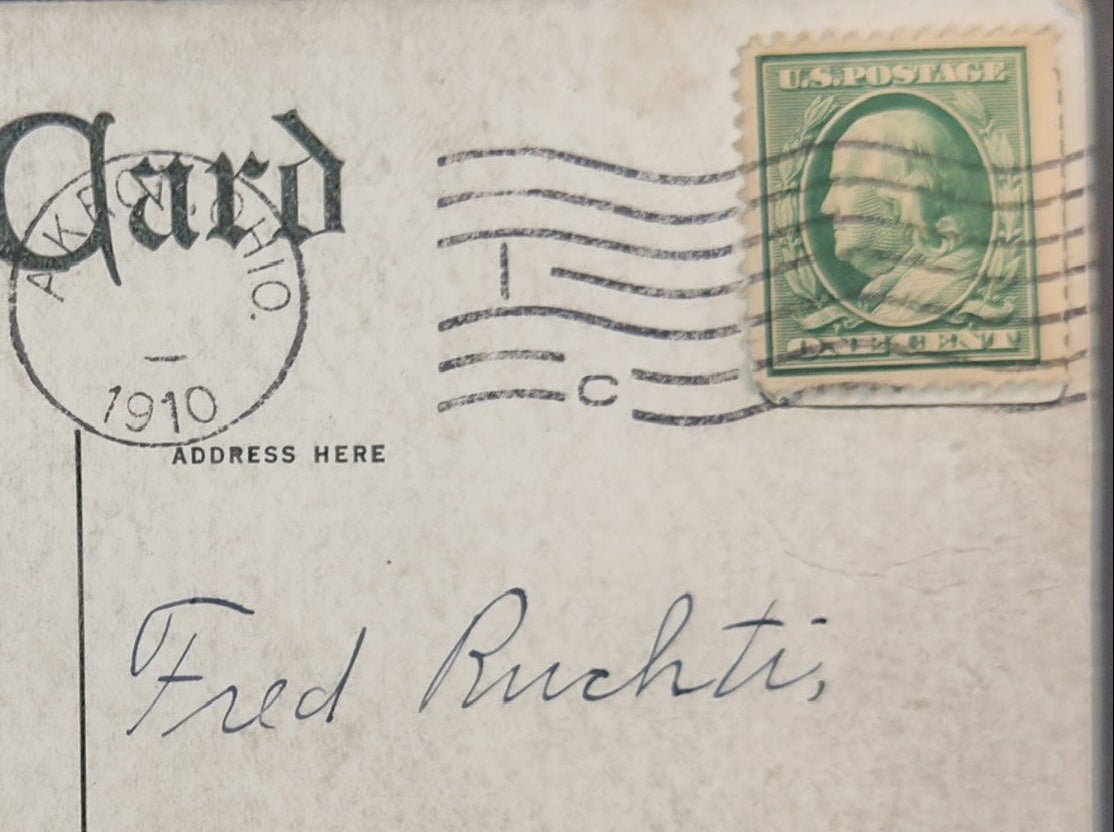 U.S.POSTAGE
Card
AKRON, OHIO.
I
ONE CENT
C
1910
ADDRESS HERE
Fred Ruchti,